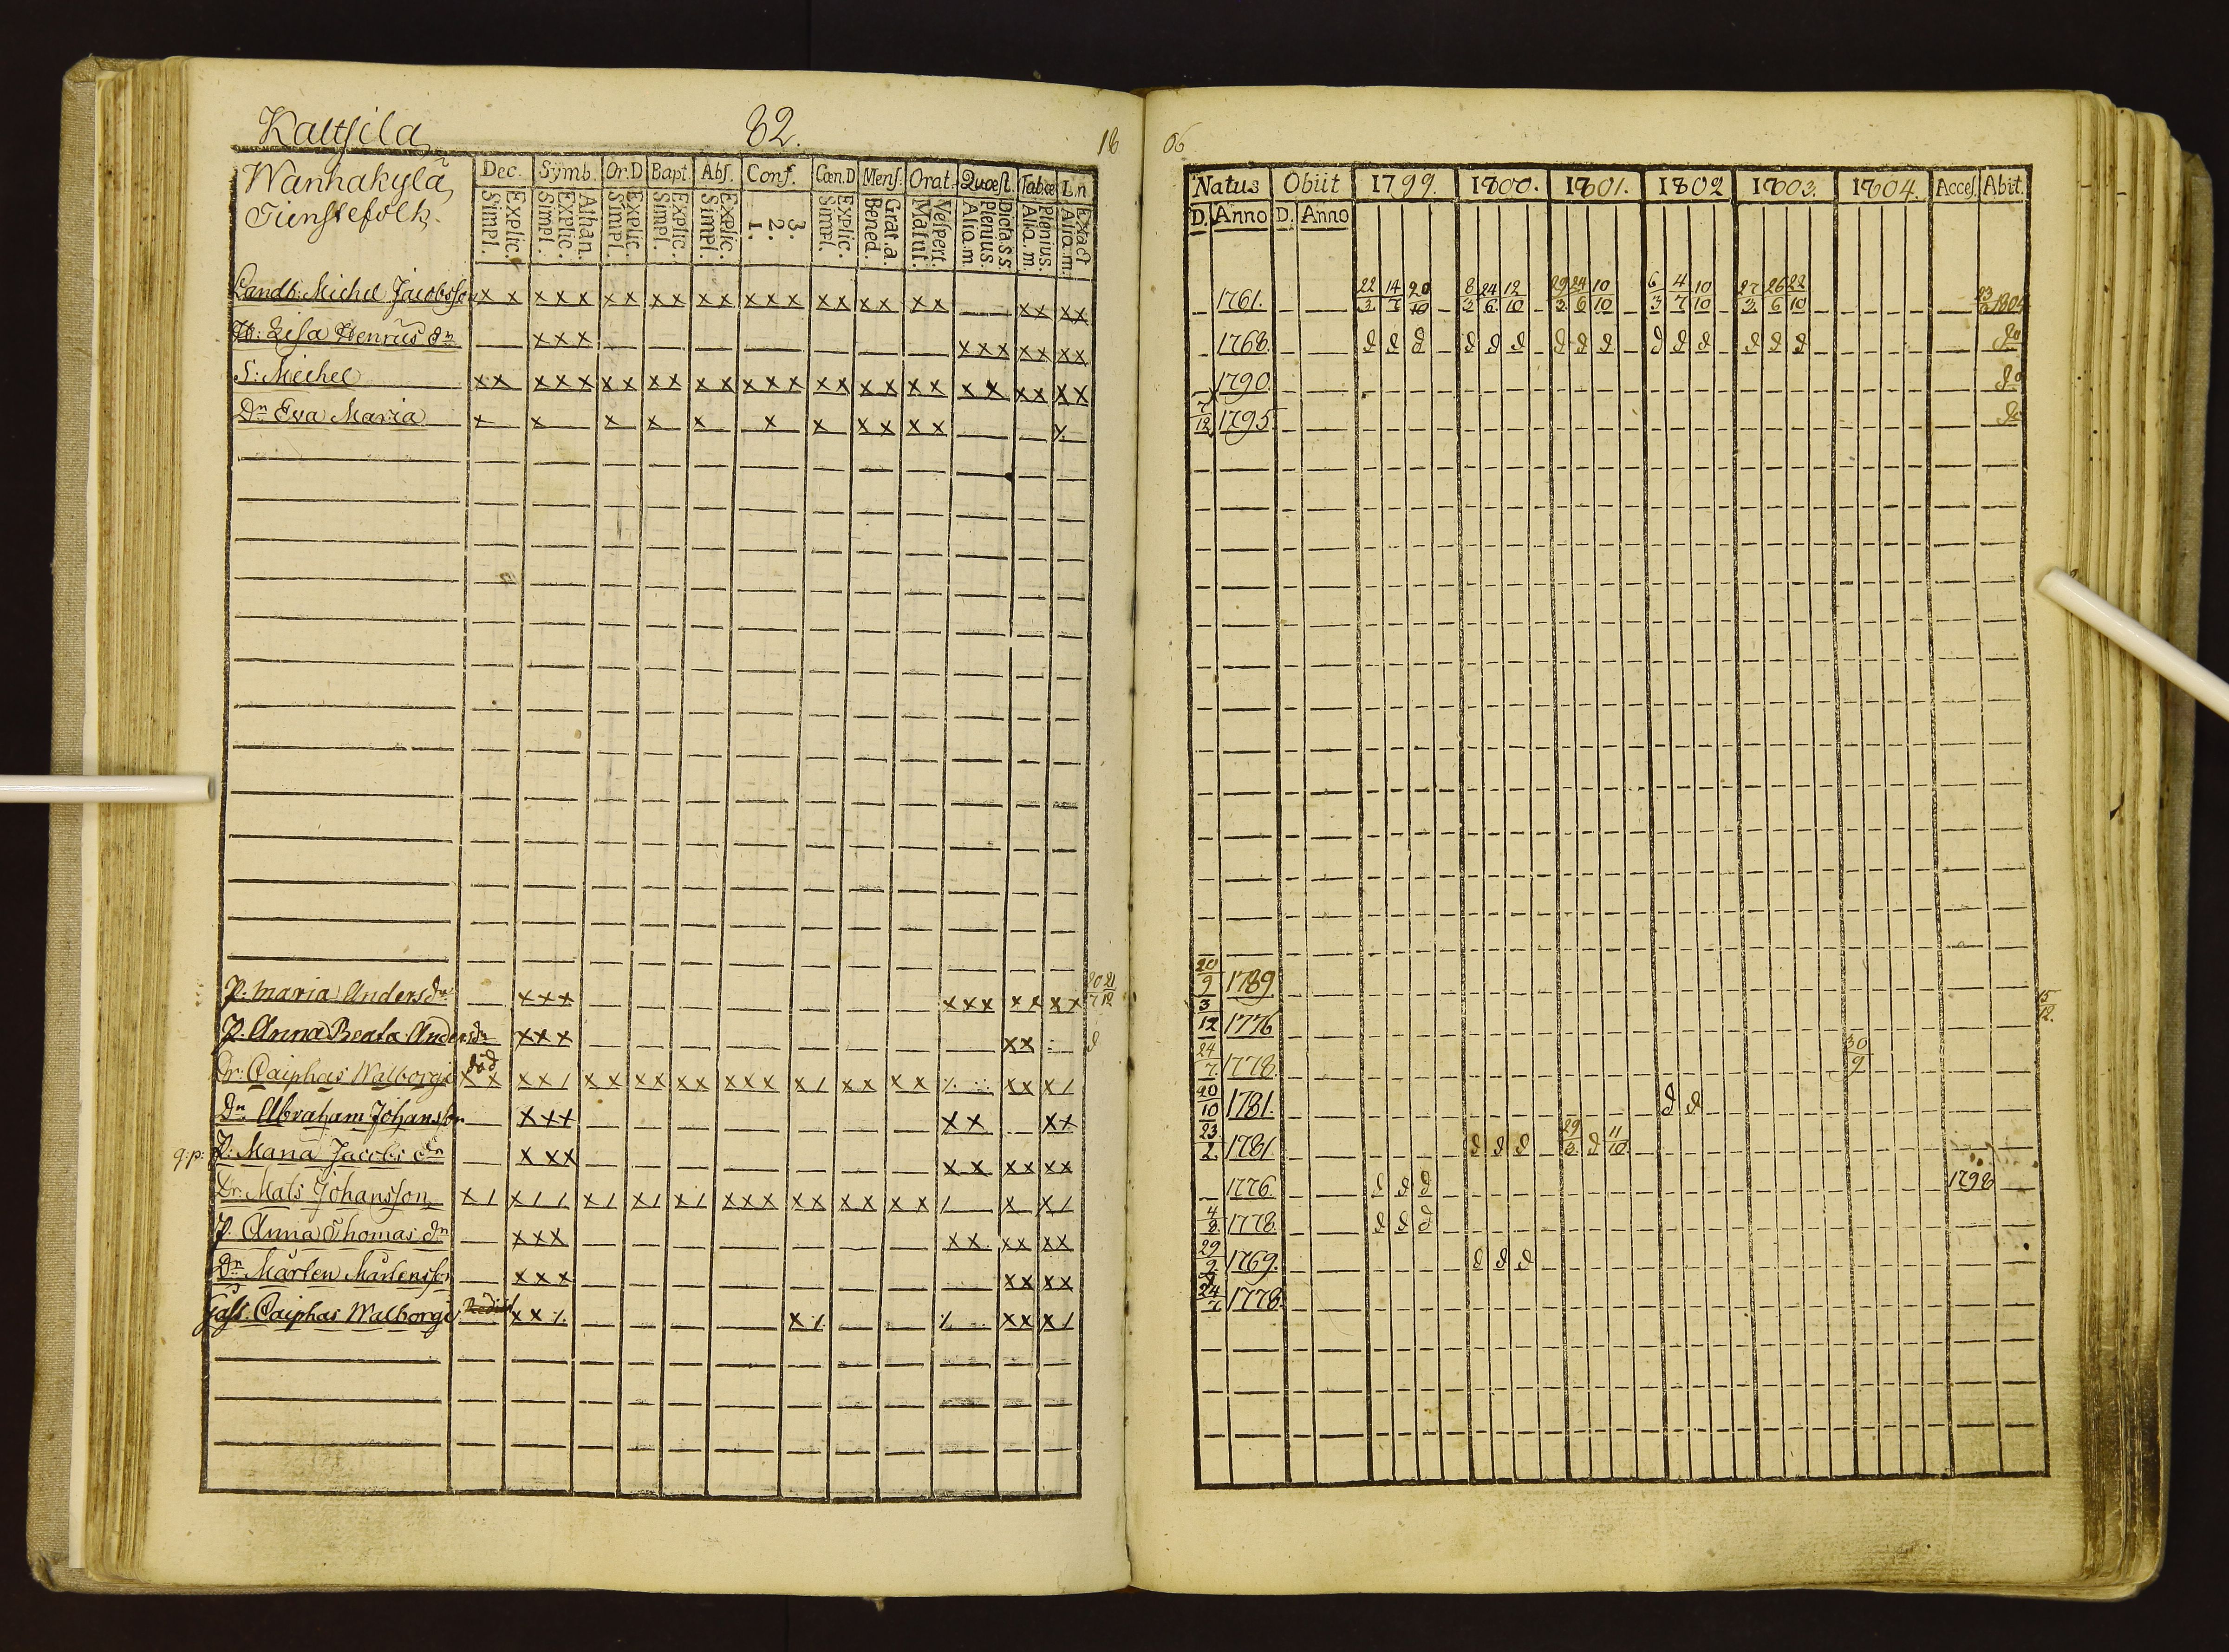 Kaltsila
82.
18
Wannakylä
Tienstefolk.
Dec. Symb. Or.D Bapt. Abs. Conf. Cœn.D Mens. Orat. Quæst. Tabœ L.n
Explic. Simpl. Athan. Explic. Simpl. Explic. Simpl. Explic. Simpl. Explic. Simpl. 3. 2. 1. Explic. Simpl. Grat. a. Bened. Vespert. Matut. Dicta s.s. Plenius. Aliq. m. Plenius. Aliq. m. Exact Aliq. m.
Landb: Michel Jacobsson xx xxx xx xx xx xxx xx xx xx xx xx
H: Lisa Henrics dr xxx xxx xx xx
S: Michel xx xxx xx xx xx xxx xx xx xx xx xx xx
Dr Eva Maria x x x x x x x xx xx
P: Maria Anders dr xxx xxx xx xx 20/7 21/12
P. Anna Beata Anders dr xxx xx d
Dr: Caiphas Walborg död xx xx/ xx xx xx xxx x/ xx xx xx x/
Dn Abraham Johansson xxx xx xx
q:p: P: Maria Jacobs dr xxx xx xx xx
Dr. Mats Johansson x/ x// x/ x/ x/ xxx xx xx xx / x x/
P. Anna Thomas dr xxx xx xx xx
Dn Mårten Mårtensson xxx xx xx
Caiphas Walborg xx/ x/ xx x/
06
Natus Obiit 1799. 1800. 1801. 1802 1803. 1804. Acces. Abit.
D. Anno D. Anno
1761. 22/3 14/7 20/10 8/3 24/6 12/10 29/3 24/6 10/10 6/3 4/7 10/10 27/3 26/6 22/10 1804
1768. d d d d d d d d d d d d d d d do
1790. do
7/12 1795. do
20/9 1789
3/12 1776 15/12.
24/7 1778. 30/9
20/10 1781. d d
23/2 1781. d d d 29/3 d 11/10
1776. d d d 1798
4/8 1778. d d d
29/9 1769. d d d
24/7 1778.